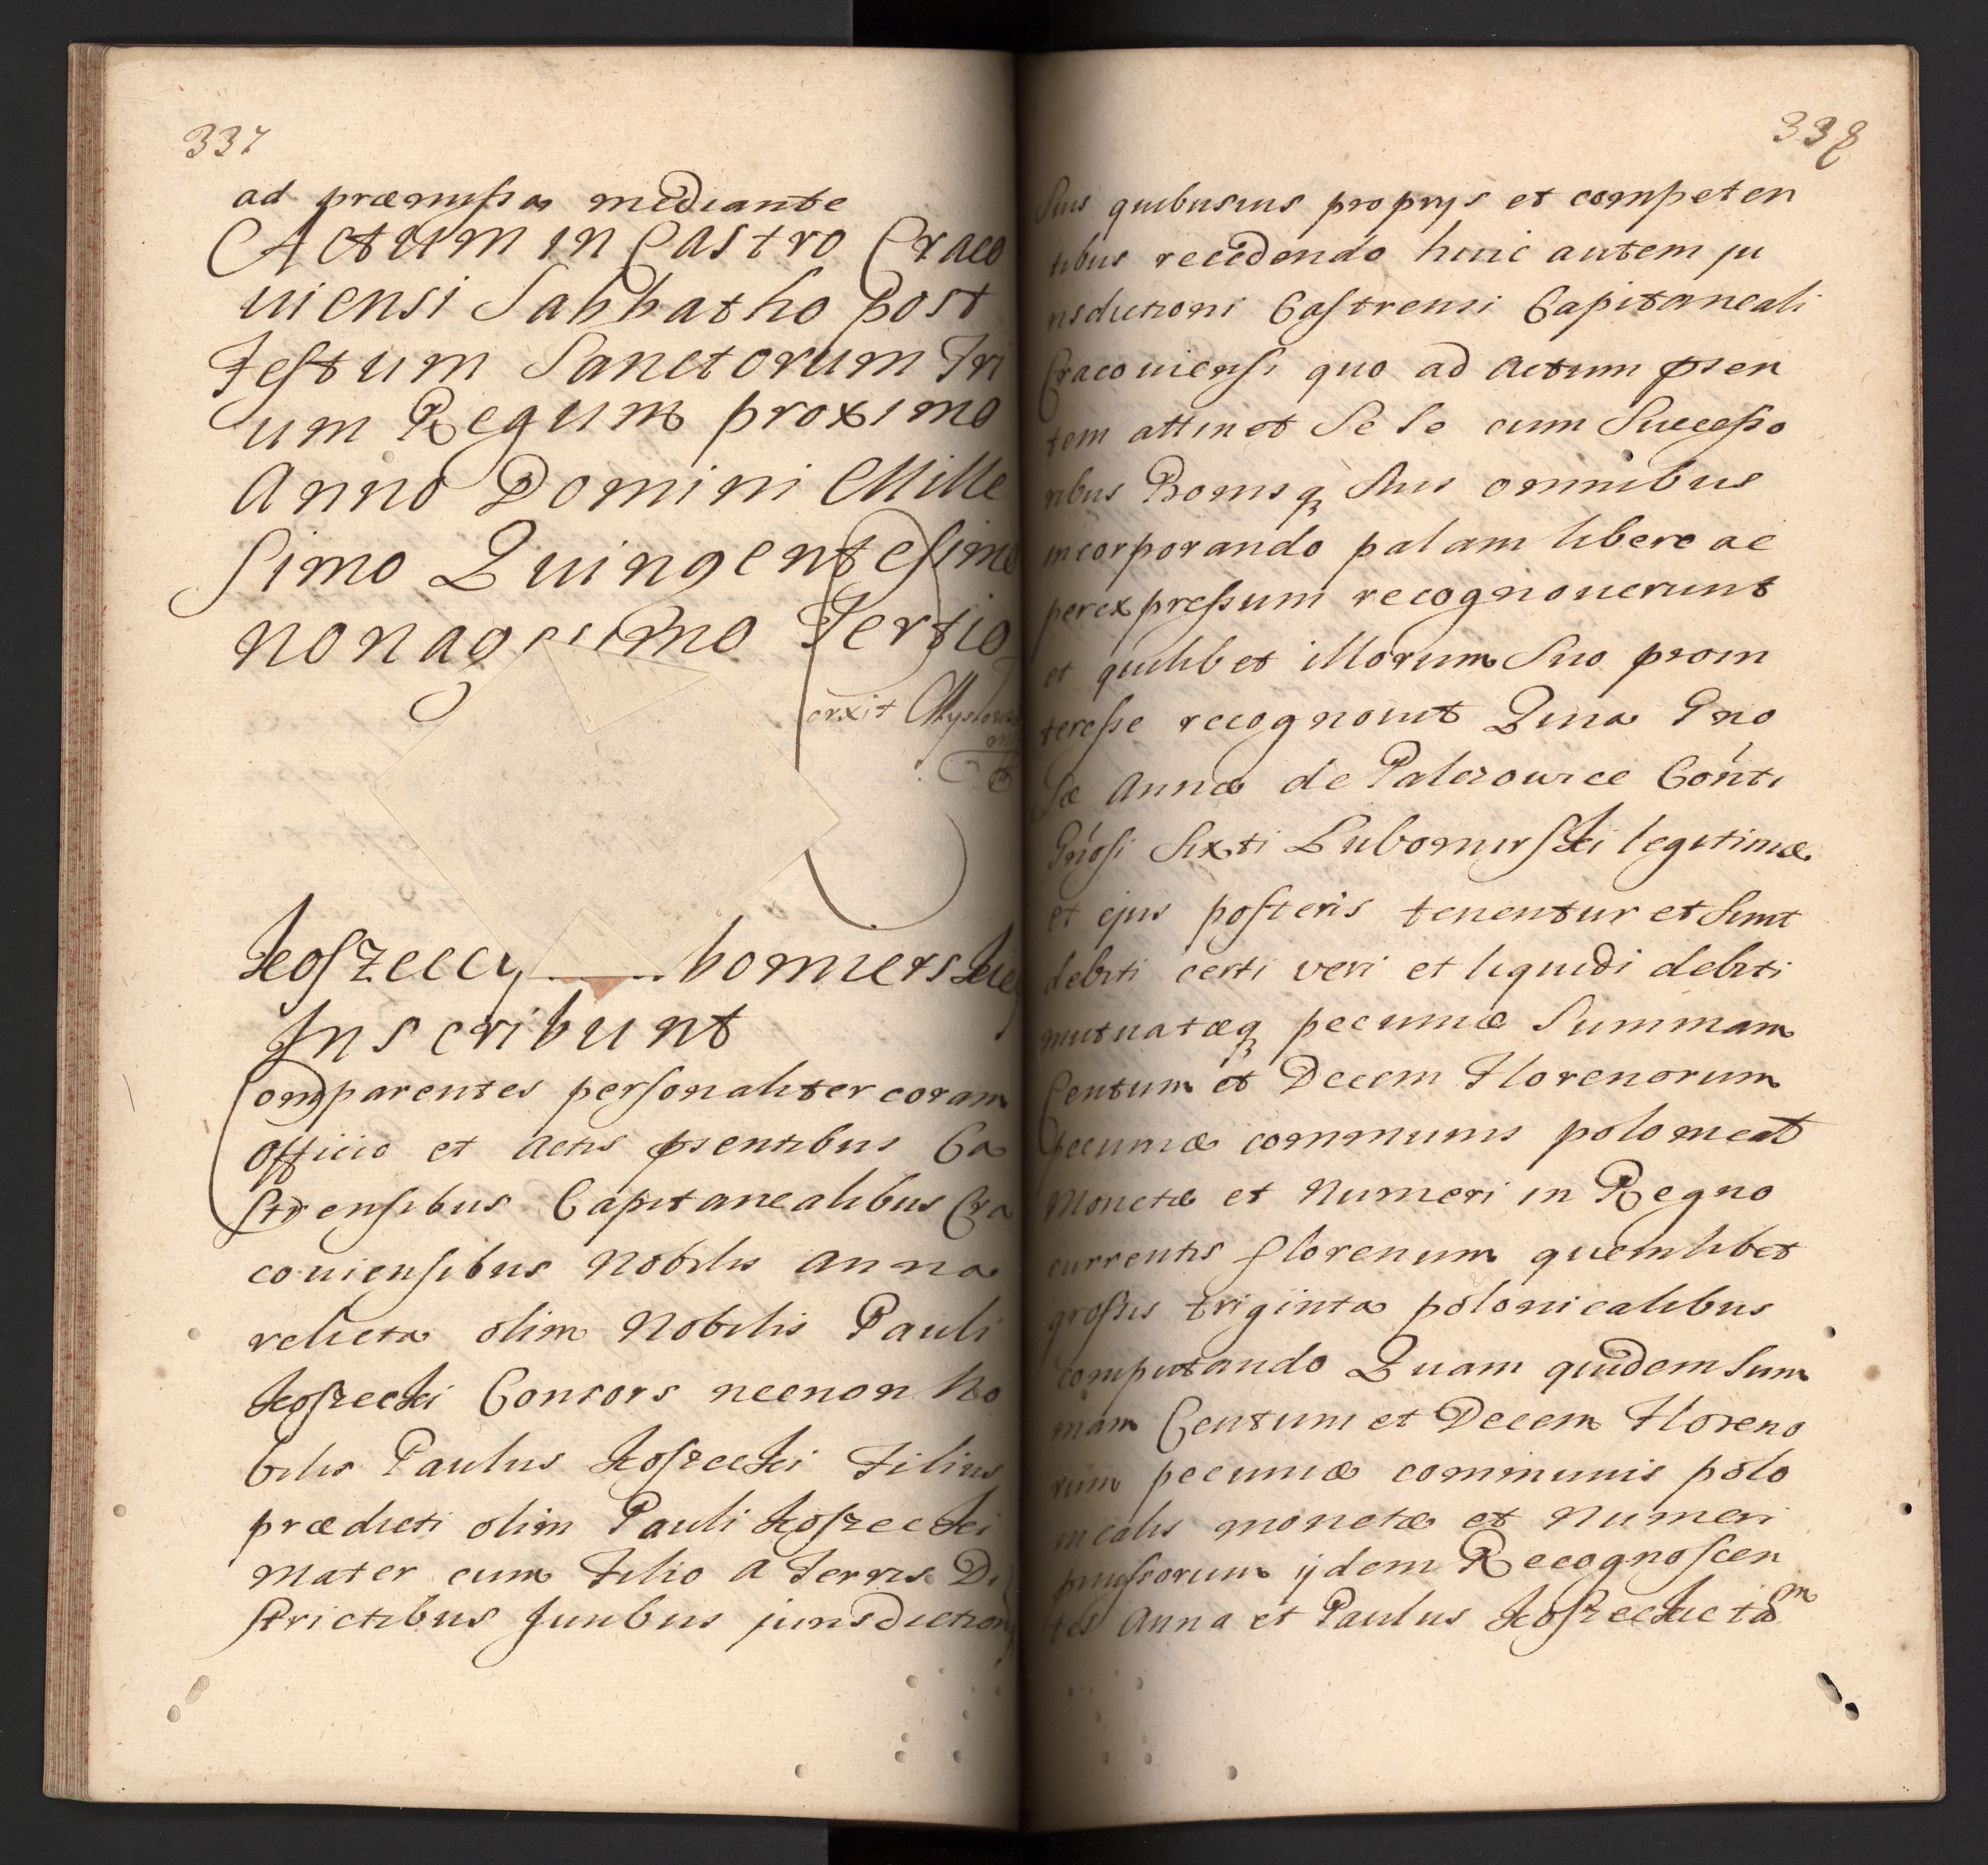 337
ad præmissa mediante
Actum in Castro Craco
uiensi Sabbatho post
Festum Sanctorum Tri
um Regum proximo
Anno Domini Mille
simo Quingentesimo
nonagesimo Tertio
Koszeccy bomierskiey
Inscribunt
Comparentes personaliter coram
officio et actis pñentibus Ca
strensibus Capitanealibus Cra
couiensibus Nobilis Anna
relicta olim Nobilis Pauli
Koszecki Consors necnon No
bilis Paulus Koszecki Filius
prædicti olim Pauli Koszecki
Mater cum Filio a Terris Di
strictibus Juribus jurisdiction
338
Suis quibusuis proprys et competen
tibus recedendo huic autem ju
risdictioni Castrensi Capitaneali
Cracouiensi quo ad actum pñen
tem attinet Se Se cum Successo
ribus Bonisq Suis omnibus
incorporando palam libere ac
per expressum recognouerunt
et quilibet illorum Suo proin
teresse recognouit Quia Gno
sæ Annæ de Palczowice Conti
Gnosi Sixti Lubomirski legitimæ
et ejus posteris tenentur et Sunt
debiti certi veri et liquidi debiti
mutuatæq pecuniæ Summam
Centum et Decem Florenorum
pecuniæ communis polonicat
Monetæ et Numeri in Regno
currentis florenum quemlibet
grossis triginta polonicalibus
computando Quam quidem Sum
mam Centum et Decem Floreno
rum pecuniæ communis polo
nicalis monetæ et Numeri
pmissorum ijdem Recognoscen
tes Anna et Paulus Koszeckie tam